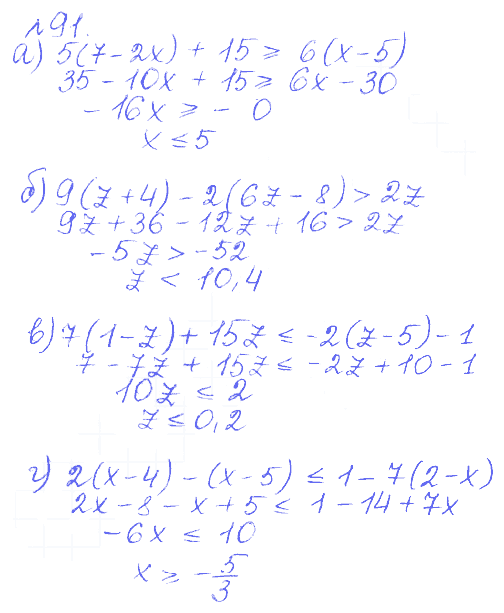 №91.
а) 5(7-2x) + 15 ≥ 6(x-5)
35 - 10x + 15 ≥ 6x - 30
- 16x ≥ - 0
x ≤ 5
б) 9(z+4) - 2(6z-8) > 2z
9z + 36 - 12z + 16 > 2z
-5z > -52
z < 10,4
в) 7(1-z) + 15z ≤ -2(z-5) - 1
7 - 7z + 15z ≤ -2z + 10 - 1
10z ≤ 2
z ≤ 0,2
г) 2(x-4) - (x-5) ≤ 1 - 7(2-x)
2x - 8 - x + 5 ≤ 1 - 14 + 7x
-6x ≤ 10
x ≥ - 5/3